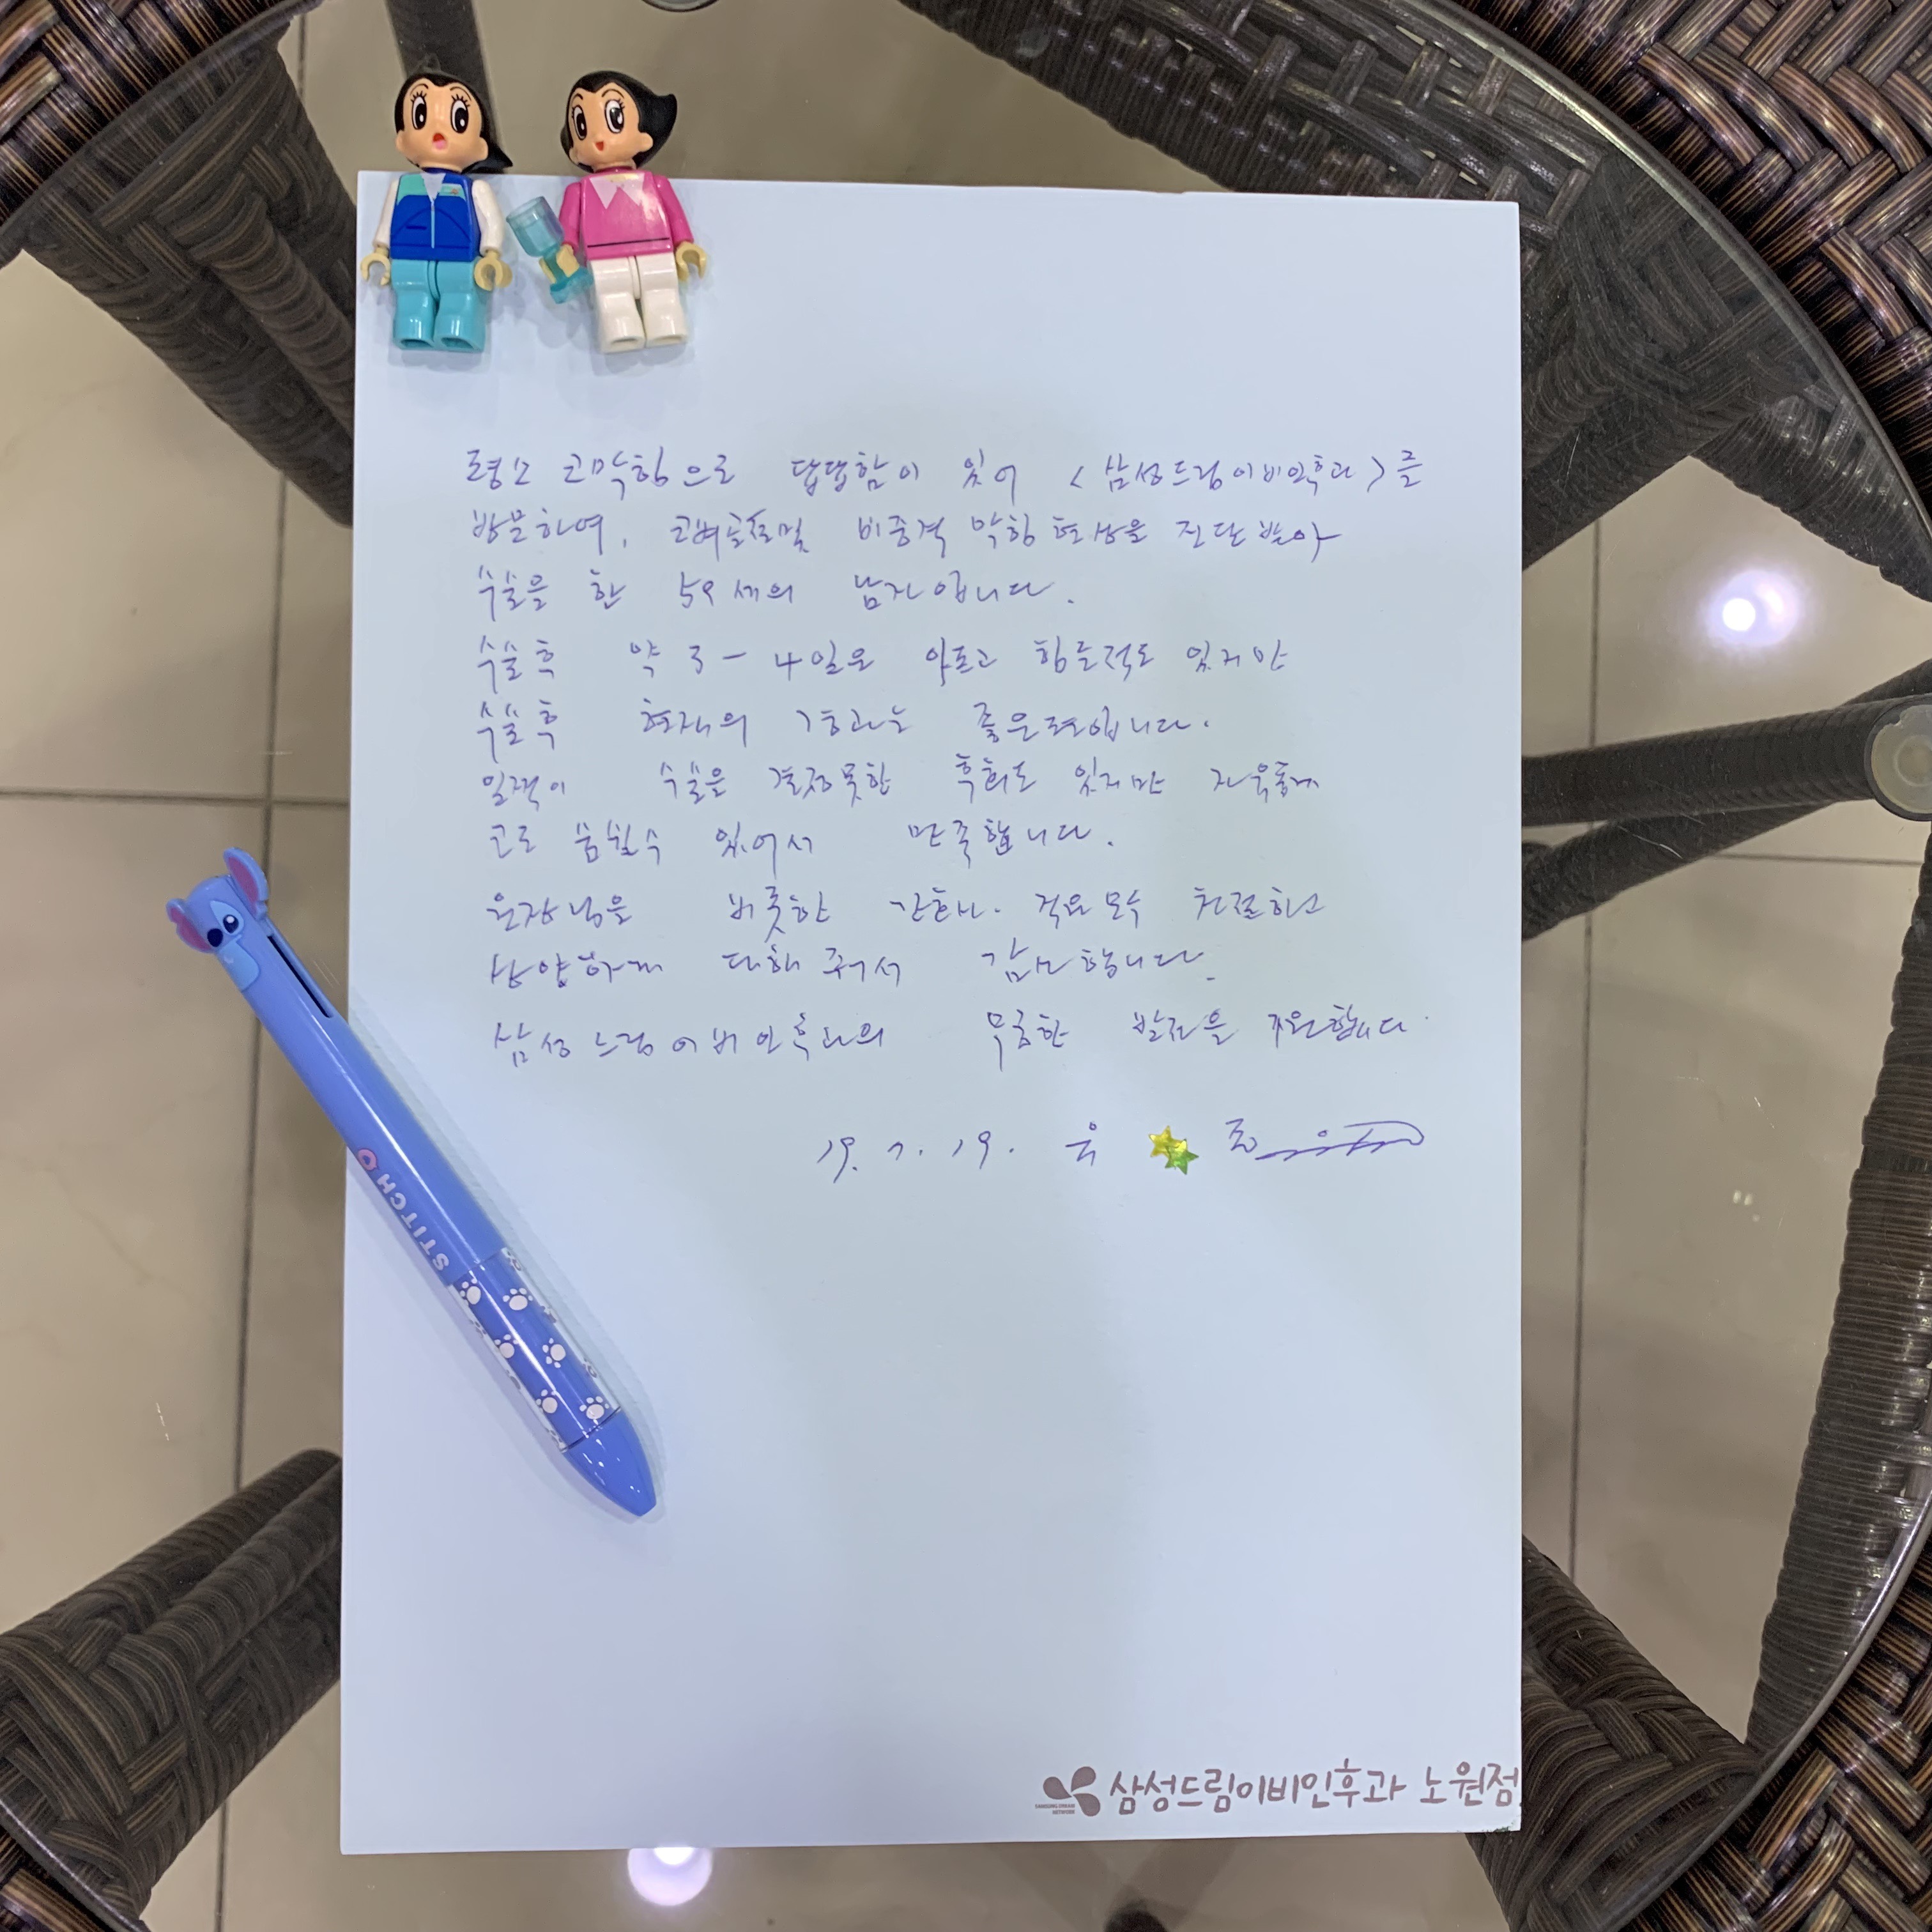 평소 코막힘으로 답답함이 있어 <삼성드림이비인후과>를
방문하여, 비중격 막힘 현상을 진단 받아
수술을 한 59세의 남자입니다.
수술후 약 3-4일은 아프고 힘든적도 있지만
수술후 현재의 경과는 좋은편입니다.
일찍이 수술을 결정못한 후회도 있지만 자유롭게
코로 숨쉴수 있어서 만족합니다.
원장님을 비롯한 간호사. 직원 모두 친절하고
상냥하게 대해 주셔서 감사합니다.
삼성드림이비인후과의 무궁한 발전을 기원합니다.
19. 7. 19.
STITCH
삼성드림이비인후과 노원점